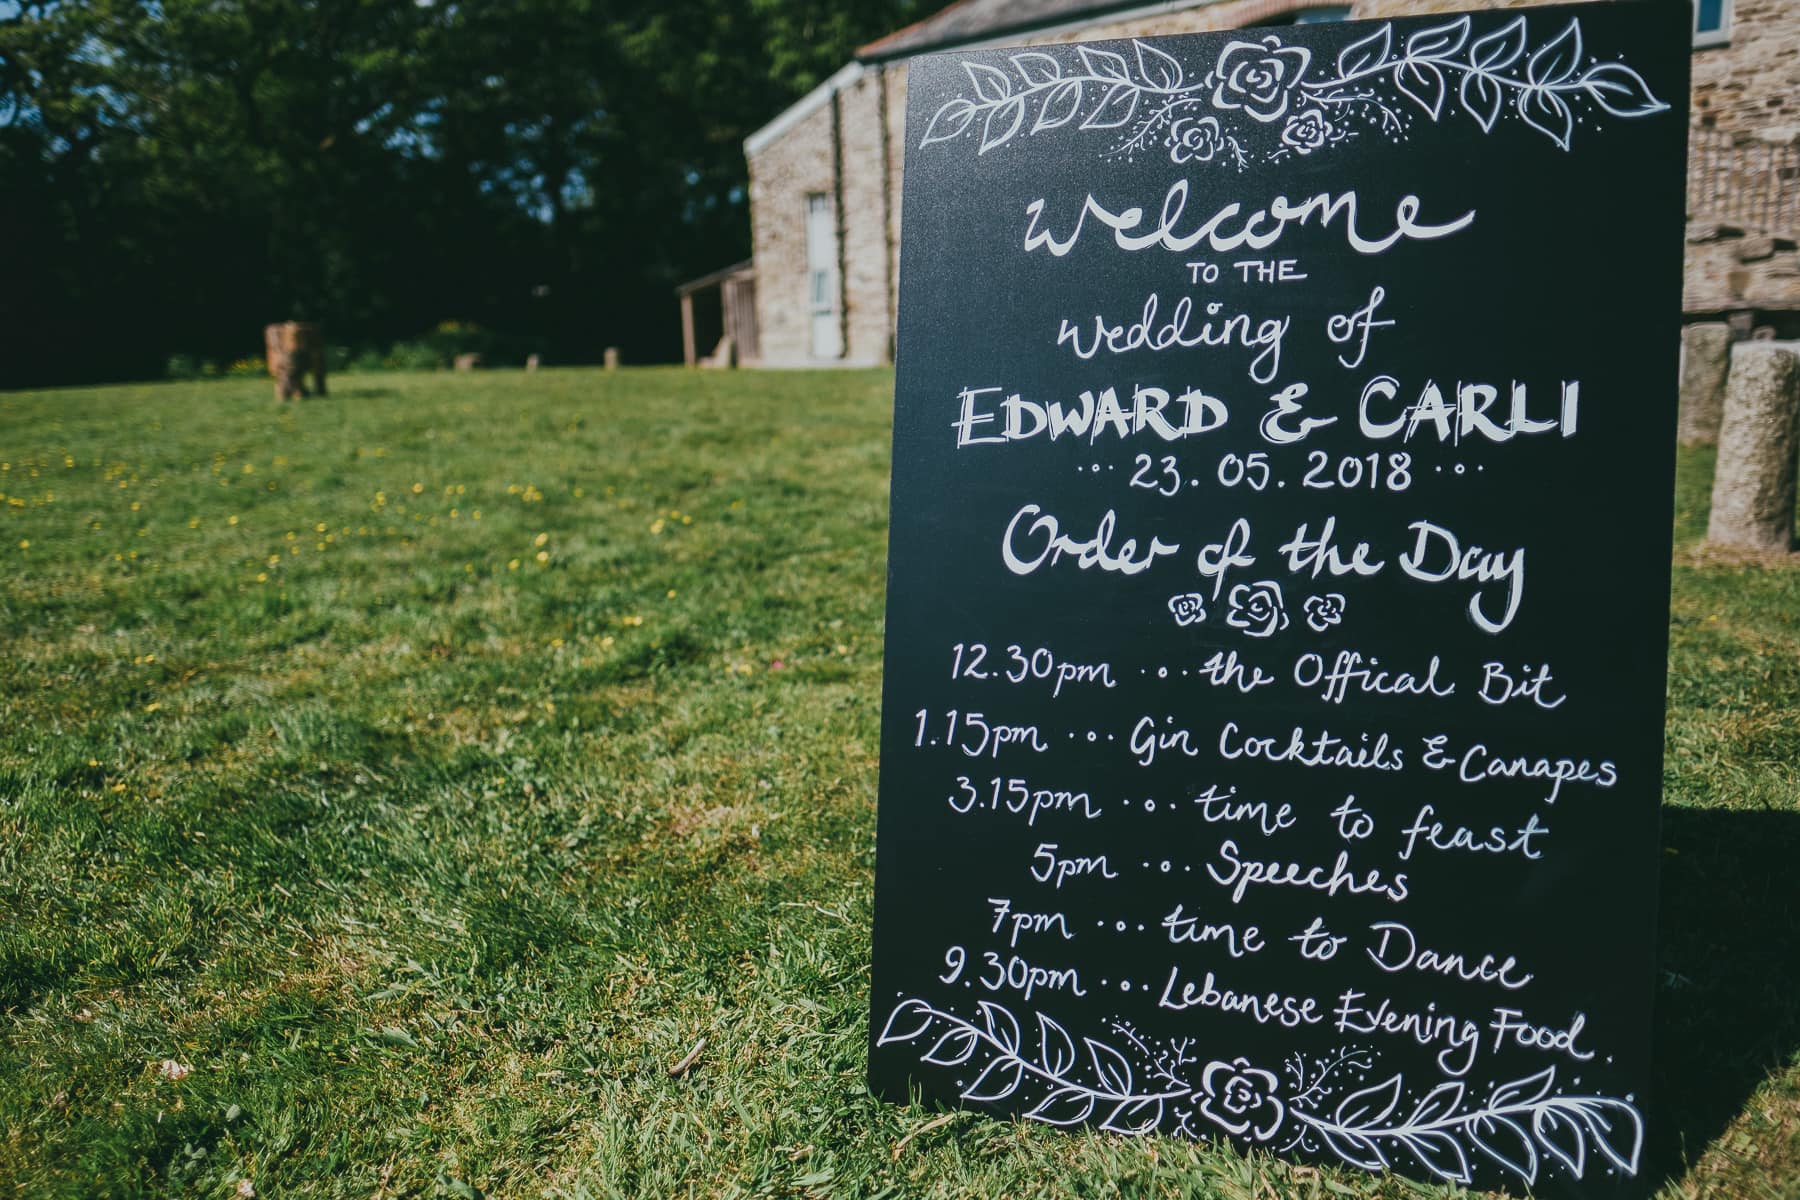 Welcome
TO THE
wedding of
EDWARD & CARLI
23.05.2018
Order of the Day
12.30pm ... the Offical Bit
1.15pm ... Gin Cocktails & Canapes
3.15pm ... time to feast
5pm ... Speeches
7pm ... time to Dance
9.30pm ... Lebanese Evening Food.